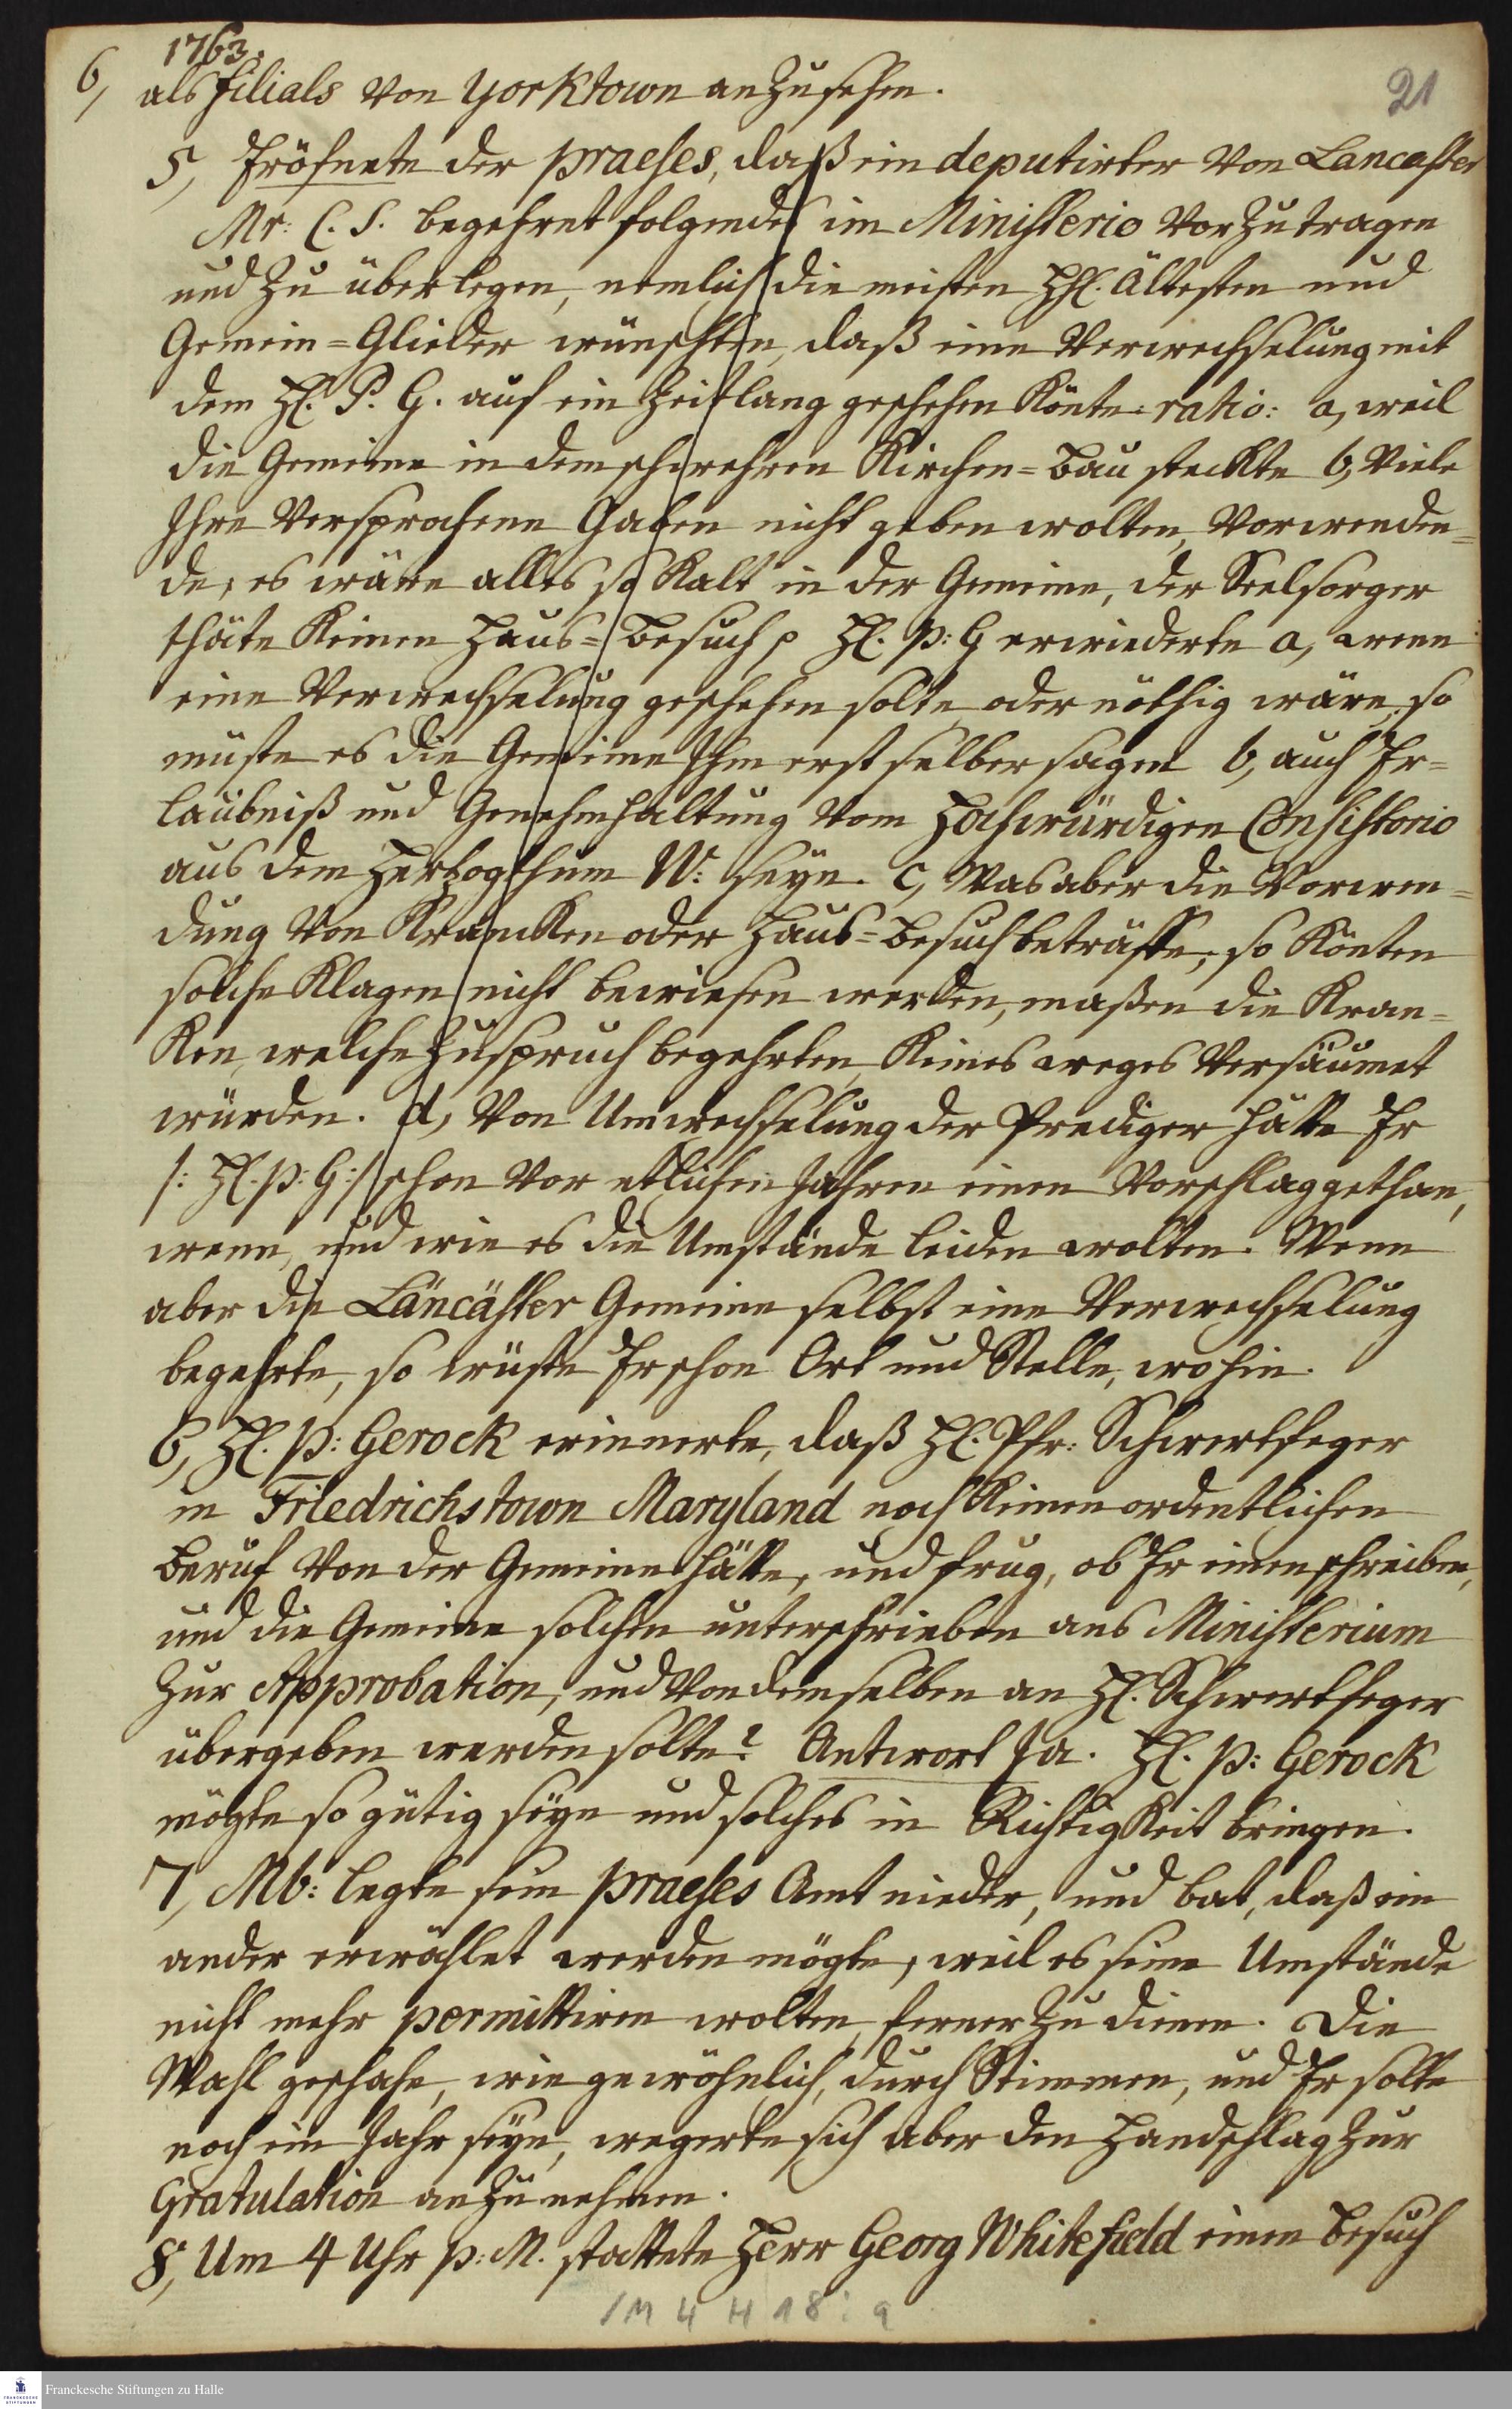 1763.
6, als Filials von Yorktown anzusehen.
21
5, Eröfnete der praeses, daß ein deputirter von Lancaster
Mr: C. S. begehret folgendes im Ministerio vorzutragen
und zu überlegen, nemlich die meisten HH. Ältesten und
Gemein=Glieder wünschten, daß eine Verwechselung mit
dem H. P. G. auf ein Zeitlang geschehen könte. ratio: a, weil
die Gemeine in dem schwehren Kirchen=Bau steckte b, Viele
Ihre versprochene Gaben nicht geben wolten, vorwenden=
de, es wäre alles so kalt in der Gemeine, der Seelsorger
thäte keinen Haus=Besuch p H. p: G erwiederte a, wenn
eine Verwechselung geschehen solte, oder nöthig wäre, so
müste es die Gemeine Ihm erst selber sagen b, auch Er=
laubniß und Genehmhaltung vom Hochwürdigen Consistorio
aus dem Hertzogthum W: seyn. C, Was aber die Vorwen=
dung von Krancken oder Haus=Besuch beträffe, so könten
solche Klagen nicht bewiesen werden, maßen die Kran=
ken, welche Zuspruch begehrten, keines weges versäumet
würden. d, Von Umwechselung der Prediger hätte Er
/: H. p: G :/ schon vor etlichen Jahren einen Vorschlag gethan,
wenn, und wie es die Umstände leiden wolten. Wenn
aber die Läncäster Gemeine selbst eine Verwechselung
begehrte, so wüste Er schon Ort und Stelle, wohin.
6, H. p: Gerock erinnerte, daß H. Pfr: Schwertfeger
in Friedrichstown Maryland noch keinen ordentlichen
Beruf von der Gemeine hätte, und frug, ob Er einen schreiben,
und die Gemeine solchen unterschrieben ans Ministerium
zur Approbation, und von demselben an H. Schwertfeger
übergeben werden solte? Antwort Ja. H. p: Gerock
mögte so gütig seyn und solches in Richtigkeit bringen.
7, Mb: legte sein praeses Amt nieder, und bat, daß ein
ander erwählet werden mögte, weil es seine Umstände
nicht mehr permittiren wolten, ferner zu dienen. Die
Wahl geschahe, wie gewöhnlich, durch Stimmen, und Er solte
noch ein Jahr seyn, wegerte sich aber den Handschlag zur
Gratulation anzunehmen.
8, Um 4 Uhr p: M. stattete Herr Georg Whitefield einen Besuch
/M 4 H 18 : 9
Franckesche Stiftungen zu Halle